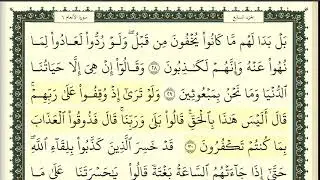 الجزء السابع سورة الأنعام ٦
بَلْ بَدَا لَهُم مَّا كَانُوا۟ يُخْفُونَ مِن قَبْلُ ۖ وَلَوْ رُدُّوا۟ لَعَادُوا۟ لِمَا
نُهُوا۟ عَنْهُ وَإِنَّهُمْ لَكَـٰذِبُونَ ٢٨ وَقَالُوٓا۟ إِنْ هِىَ إِلَّا حَيَاتُنَا
ٱلدُّنْيَا وَمَا نَحْنُ بِمَبْعُوثِينَ ٢٩ وَلَوْ تَرَىٰٓ إِذْ وُقِفُوا۟ عَلَىٰ رَبِّهِمْ ۚ
قَالَ أَلَيْسَ هَـٰذَا بِٱلْحَقِّ ۚ قَالُوا۟ بَلَىٰ وَرَبِّنَا ۚ قَالَ فَذُوقُوا۟ ٱلْعَذَابَ
بِمَا كُنتُمْ تَكْفُرُونَ ٣٠ قَدْ خَسِرَ ٱلَّذِينَ كَذَّبُوا۟ بِلِقَآءِ ٱللَّهِ ۖ
حَتَّىٰٓ إِذَا جَآءَتْهُمُ ٱلسَّاعَةُ بَغْتَةً قَالُوا۟ يَـٰحَسْرَتَنَا عَلَىٰ مَا